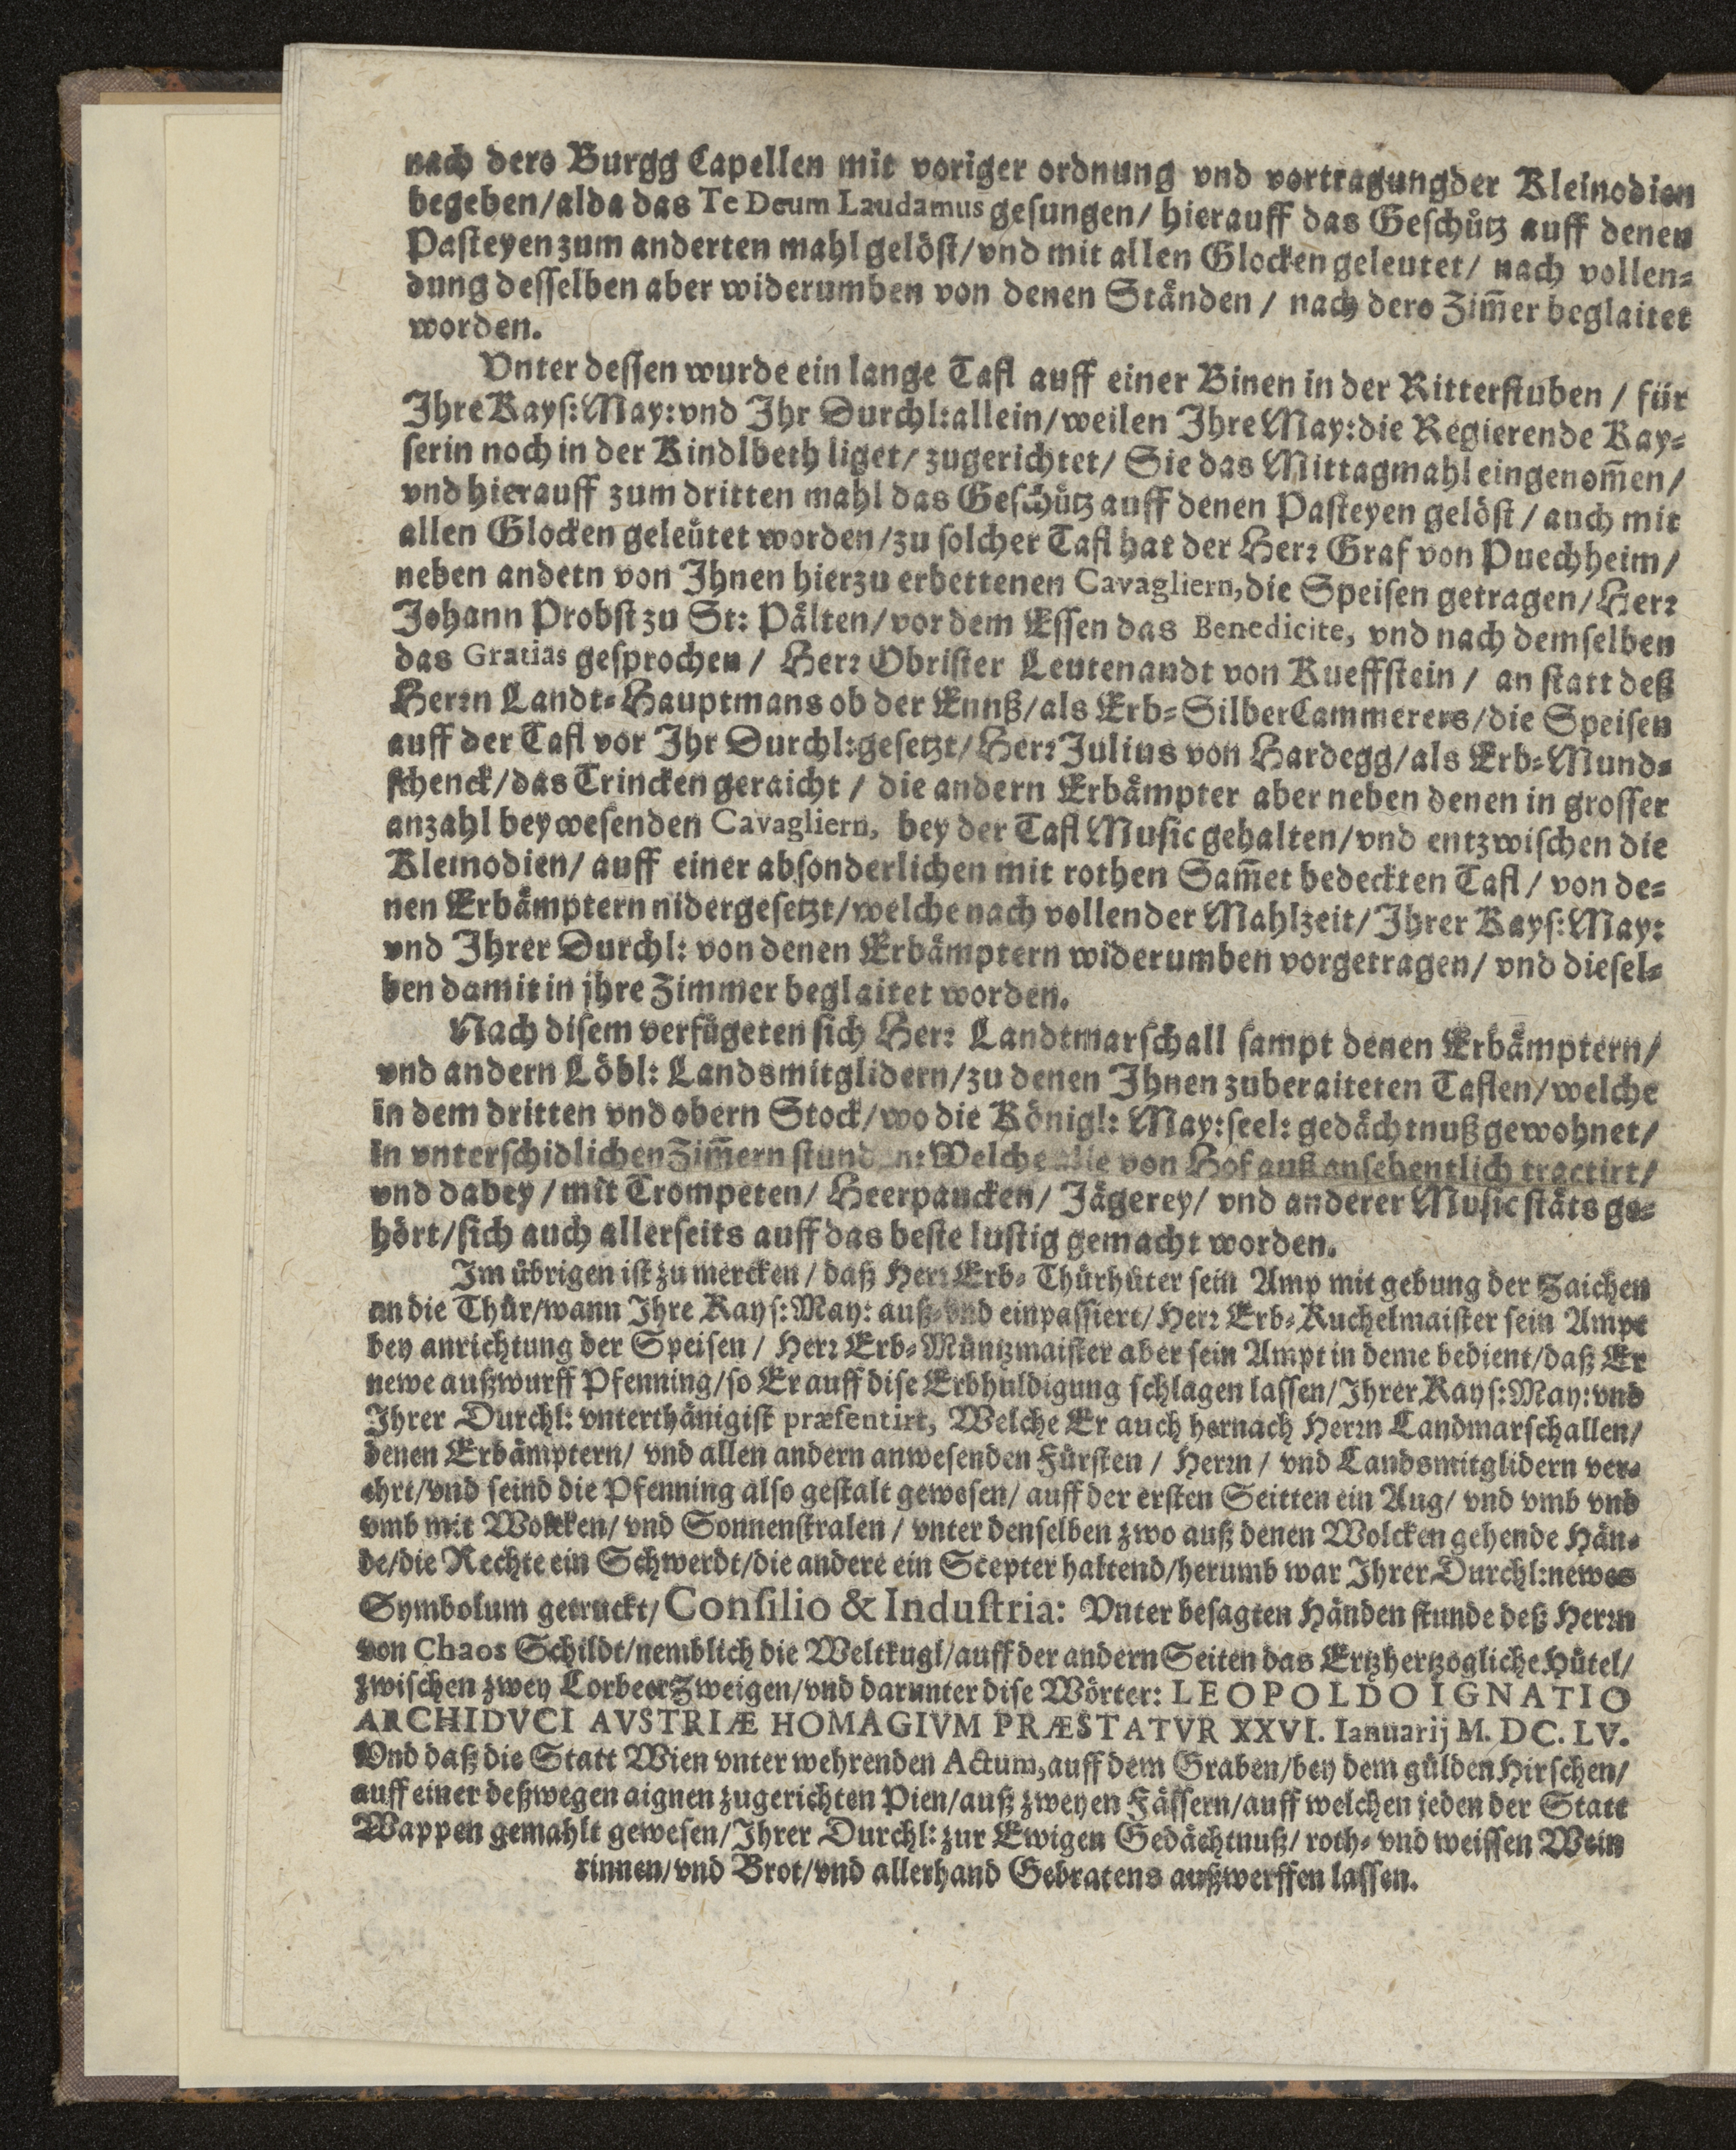 nach dero Burgg Capellen mit voriger ordnung vnd vortragungder Kleinodien
begeben/alda das Te Deum Laudamus gesungen/ hierauff das Geschütz auff denen
Pasteyen zum anderten mahl gelöst/vnd mit allen Glocken geleutet/ nach vollen=
dung desselben aber widerumben von denen Ständen / nach dero Zim̃er beglaitet
worden.
Vnter dessen wurde ein lange Tafl auff einer Binen in der Ritterstuben / für
Ihre Kays: May: vnd Ihr Durchl: allein/weilen Ihre May: die Regierende Kay=
serin noch in der Kindlbeth liget/ zugerichtet/ Sie das Mittagmahl eingenom̃en/
vnd hierauff zum dritten mahl das Geschütz auff denen Pasteyen gelöst / auch mit
allen Glocken geleütet worden/zu solcher Tafl hat der Herꝛ Graf von Puechheim/
neben andern von Ihnen hierzu erbettenen Cavagliern, die Speisen getragen/ Herꝛ
Johann Probst zu St: Pälten/vor dem Essen das Benedicite, vnd nach demselben
das Gratias gesprochen / Herꝛ Obrister Leutenandt von Kueffstein / an statt deß
Herꝛn Landt=Hauptmans ob der Ennß/als Erb=SilberCammerers/die Speisen
auff der Tafl vor Ihr Durchl: gesetzt/Herꝛ Julius von Hardegg/als Erb=Mund=
schenck/das Trincken geraicht / die andern Erbämpter aber neben denen in grosser
anzahl bey wesenden Cavagliern, bey der Tafl Music gehalten/vnd entzwischen die
Kleinodien/ auff einer absonderlichen mit rothen Sam̃et bedeckten Tafl / von de=
nen Erbämptern nidergesetzt/welche nach vollender Mahlzeit/Ihrer Kays: May:
vnd Ihrer Durchl: von denen Erbämptern widerumben vorgetragen/ vnd diesel=
ben damit in jhre Zimmer beglaitet worden.
Nach disem verfügeten sich Herꝛ Landtmarschall sampt denen Erbämptern/
vnd andern Löbl: Landsmitglidern/zu denen Ihnen zuberaiteten Taflen/welche
in dem dritten vnd obern Stock/wo die Königl: May: seel: gedächtnuß gewohnet/
in vnterschidlichen Zim̃ern stunden: Welche alle von Hof auß ansehentlich tractirt/
vnd dabey / mit Trompeten/ Heerpaucken/ Jägerey/ vnd anderer Music stäts ge=
hört/sich auch allerseits auff das beste lustig gemacht worden.
Im übrigen ist zu mercken / daß Herꝛ Erb=Thürhüter sein Amp mit gebung der Zaichen
an die Thür/wann Ihre Kays: May: auß=vnd einpassiert/ Herꝛ Erb=Kuchelmaister sein Ampt
bey anrichtung der Speisen / Herꝛ Erb=Müntzmaister aber sein Ampt in deme bedient/daß Er
newe außwurff Pfenning/so Er auff dise Erbhuldigung schlagen lassen/Ihrer Kays: May: vnd
Ihrer Durchl: vnterthänigist præsentirt, Welche Er auch hernach Herꝛn Landmarschallen/
denen Erbämptern/ vnd allen andern anwesenden Fürsten / Herꝛn / vnd Landsmitglidern ver=
ehrt/vnd seind die Pfenning also gestalt gewesen/ auff der ersten Seitten ein Aug/ vnd vmb vnd
vmb mit Wolcken/ vnd Sonnenstralen / vnter denselben zwo auß denen Wolcken gehende Hän=
de/die Rechte ein Schwerdt/die andere ein Scepter haltend/herumb war Ihrer Durchl: newes
Symbolum getruckt/ Consilio & Industria: Vnter besagten Händen stunde deß Herꝛn
von Chaos Schildt/nemblich die Weltkugl/auff der andern Seiten das Ertzhertzogliche Hütel/
zwischen zwey Lorbeer Zweigen/vnd darunter dise Wörter: LEOPOLDO IGNATIO
ARCHIDVCI AVSTRIÆ HOMAGIVM PRÆSTATVR XXVI. Ianuarij M. DC. LV.
Vnd daß die Statt Wien vnter wehrenden Actum, auff dem Graben/bey dem gülden Hirschen/
auff einer deßwegen aignen zugerichten Pien/auß zweyen Fässern/auff welchen jeden der Statt
Wappen gemahlt gewesen/Ihrer Durchl: zur Ewigen Gedächtnuß/ roth= vnd weissen Wein
rinnen/vnd Brot/vnd allerhand Gebratens außwerffen lassen.